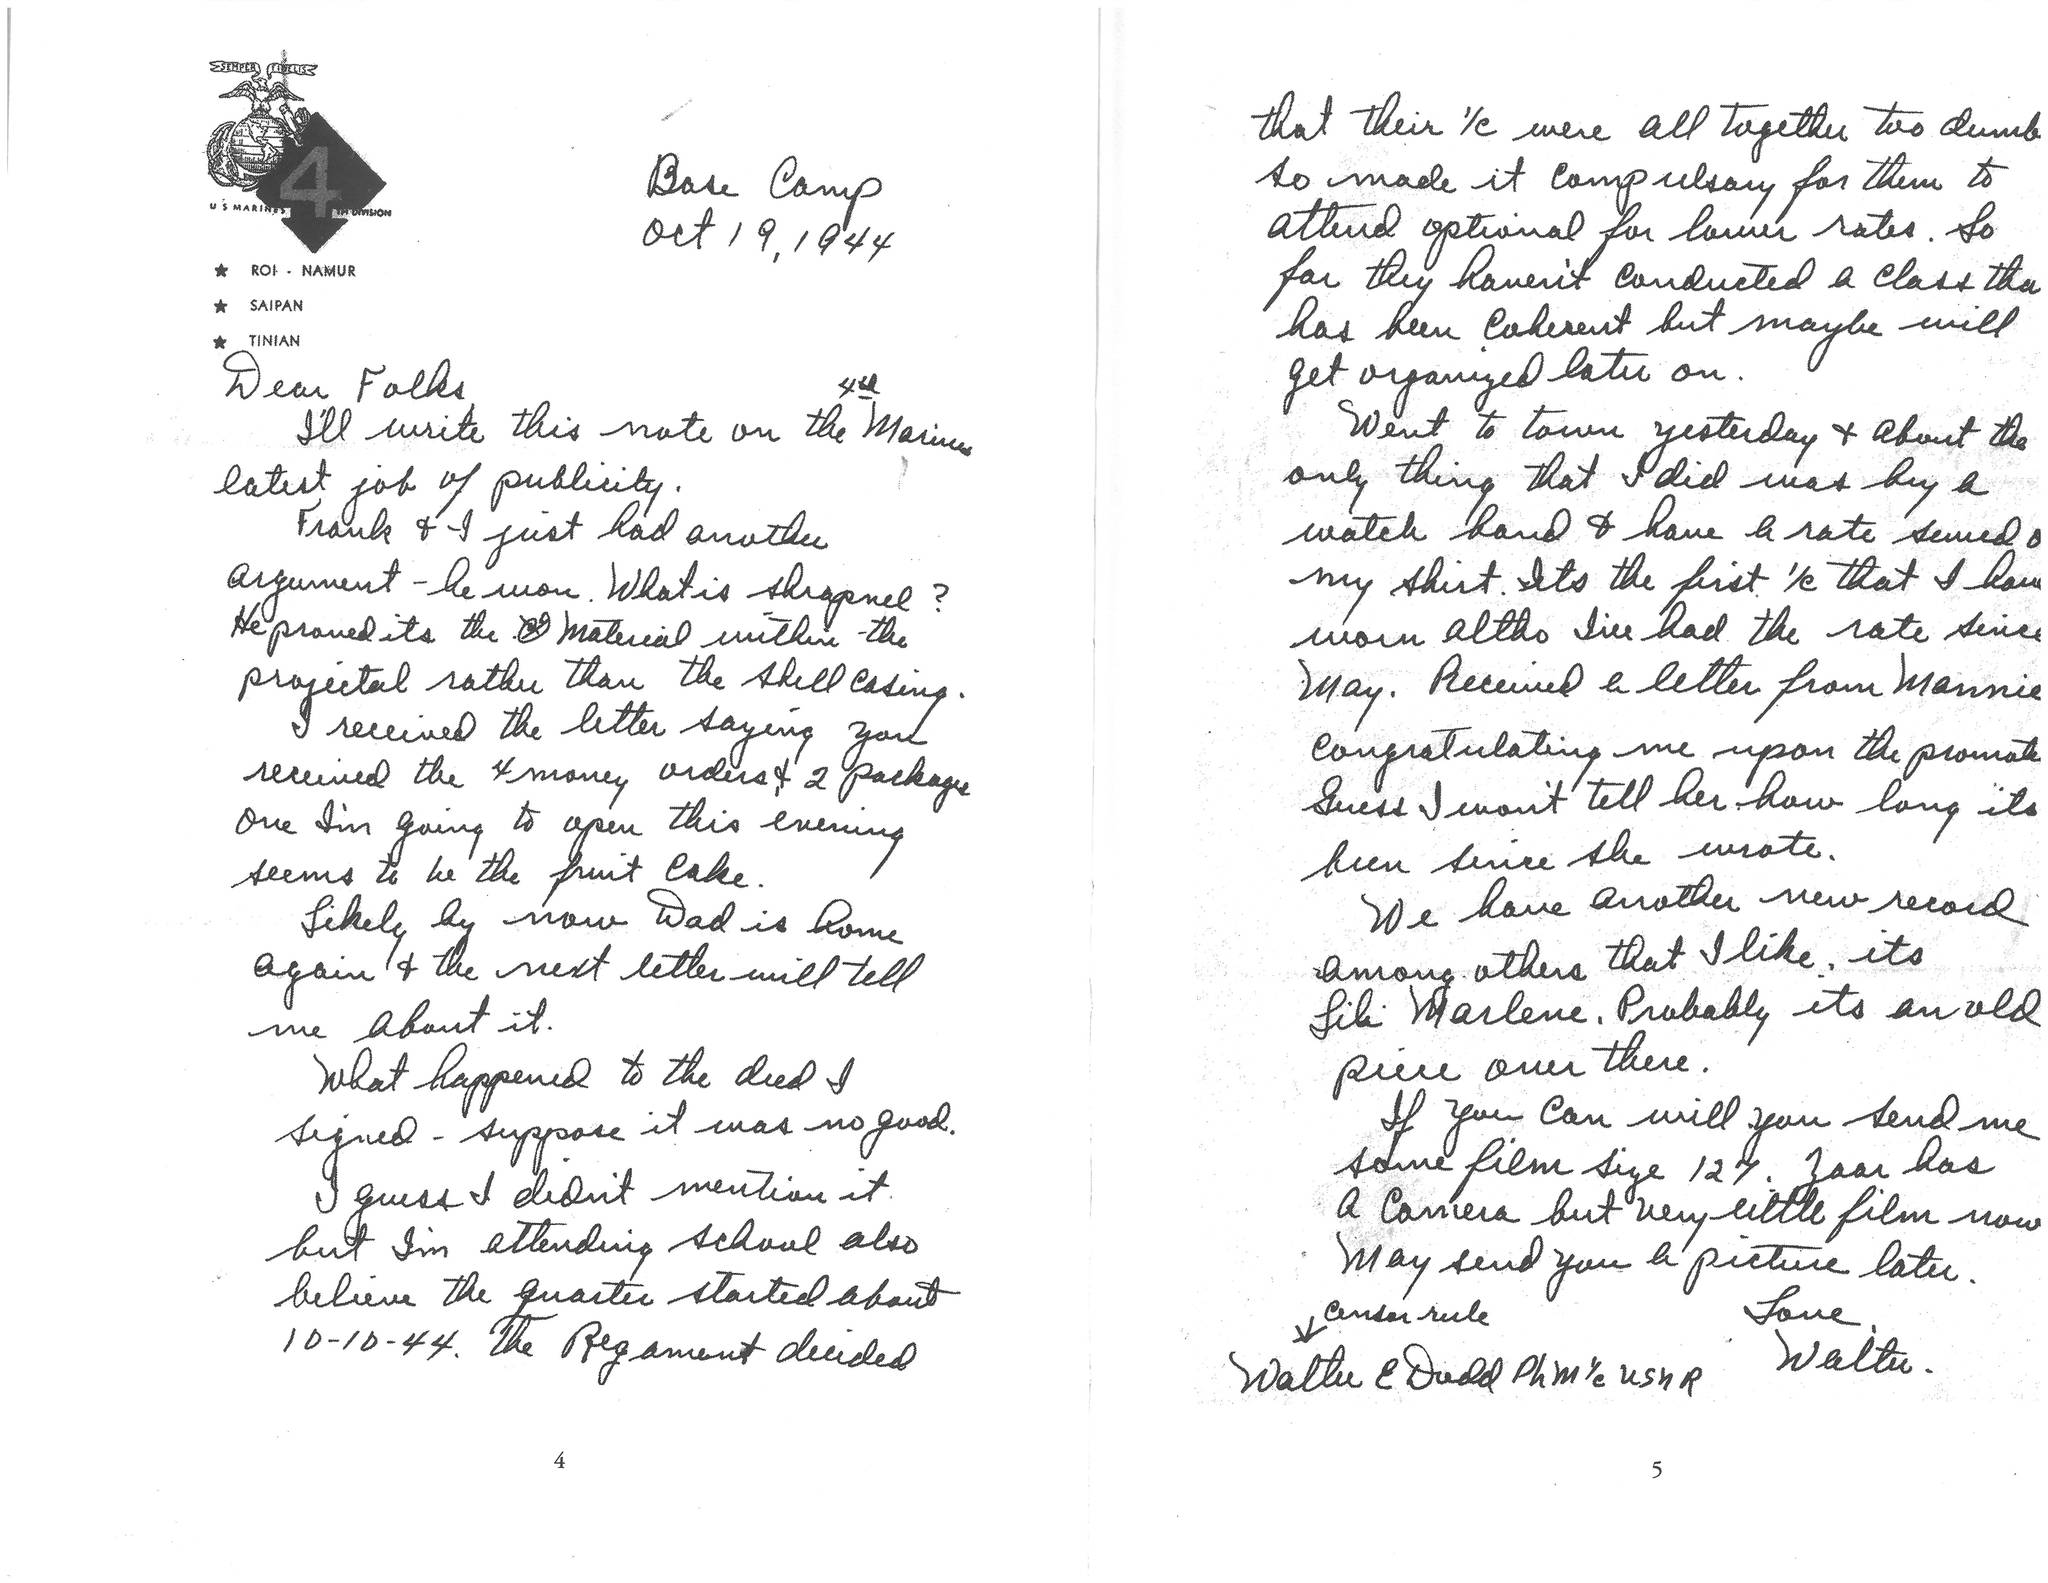 SEMPER FIDELIS
4
U S MARINES TH DIVISION
★ ROI - NAMUR
★ SAIPAN
★ TINIAN
Base Camp
Oct 19, 1944
Dear Folks,
I'll write this note on the 4th Marines
latest job of publicity.
Frank & I just had another
argument - he won. What is shrapnel?
He proved its the material within the
projectal rather than the shell casing.
I received the letter saying you
received the 4 money orders & 2 packages
one I'm going to open this evening
seems to be the fruit cake.
Likely by now Dad is home
again & the next letter will tell
me about it.
What happened to the deed I
signed - suppose it was no good.
I guess I didn't mention it
but I'm attending school also
believe the quarter started about
10-10-44. The Regament decided
4
that their 1/c were all together too dumb
so made it compulsary for them to
attend optional for lower rates. So
far they haven't conducted a class tha
has been coherent but maybe will
get organized later on.
Went to town yesterday & about the
only thing that I did was buy a
watch band & have a rate sewed o
my shirt. Its the first 1/c that I have
worn altho I've had the rate since
May. Received a letter from Mannie
congratulating me upon the promot
Guess I won't tell her how long its
been since she wrote.
We have another new record
among others that I like, its
Lili Marlene. Probably its an old
piece over there.
If you can will you send me
some film size 127. Zaar has
a camera but very little film now
May send you a picture later.
↓ censor rule Love,
Walter E Dodd PhM 1/c USNR Walter.
5